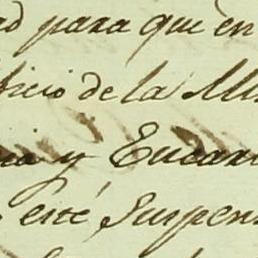 ad para que en
ficio de la Mis
cia y Encar
esté suspen